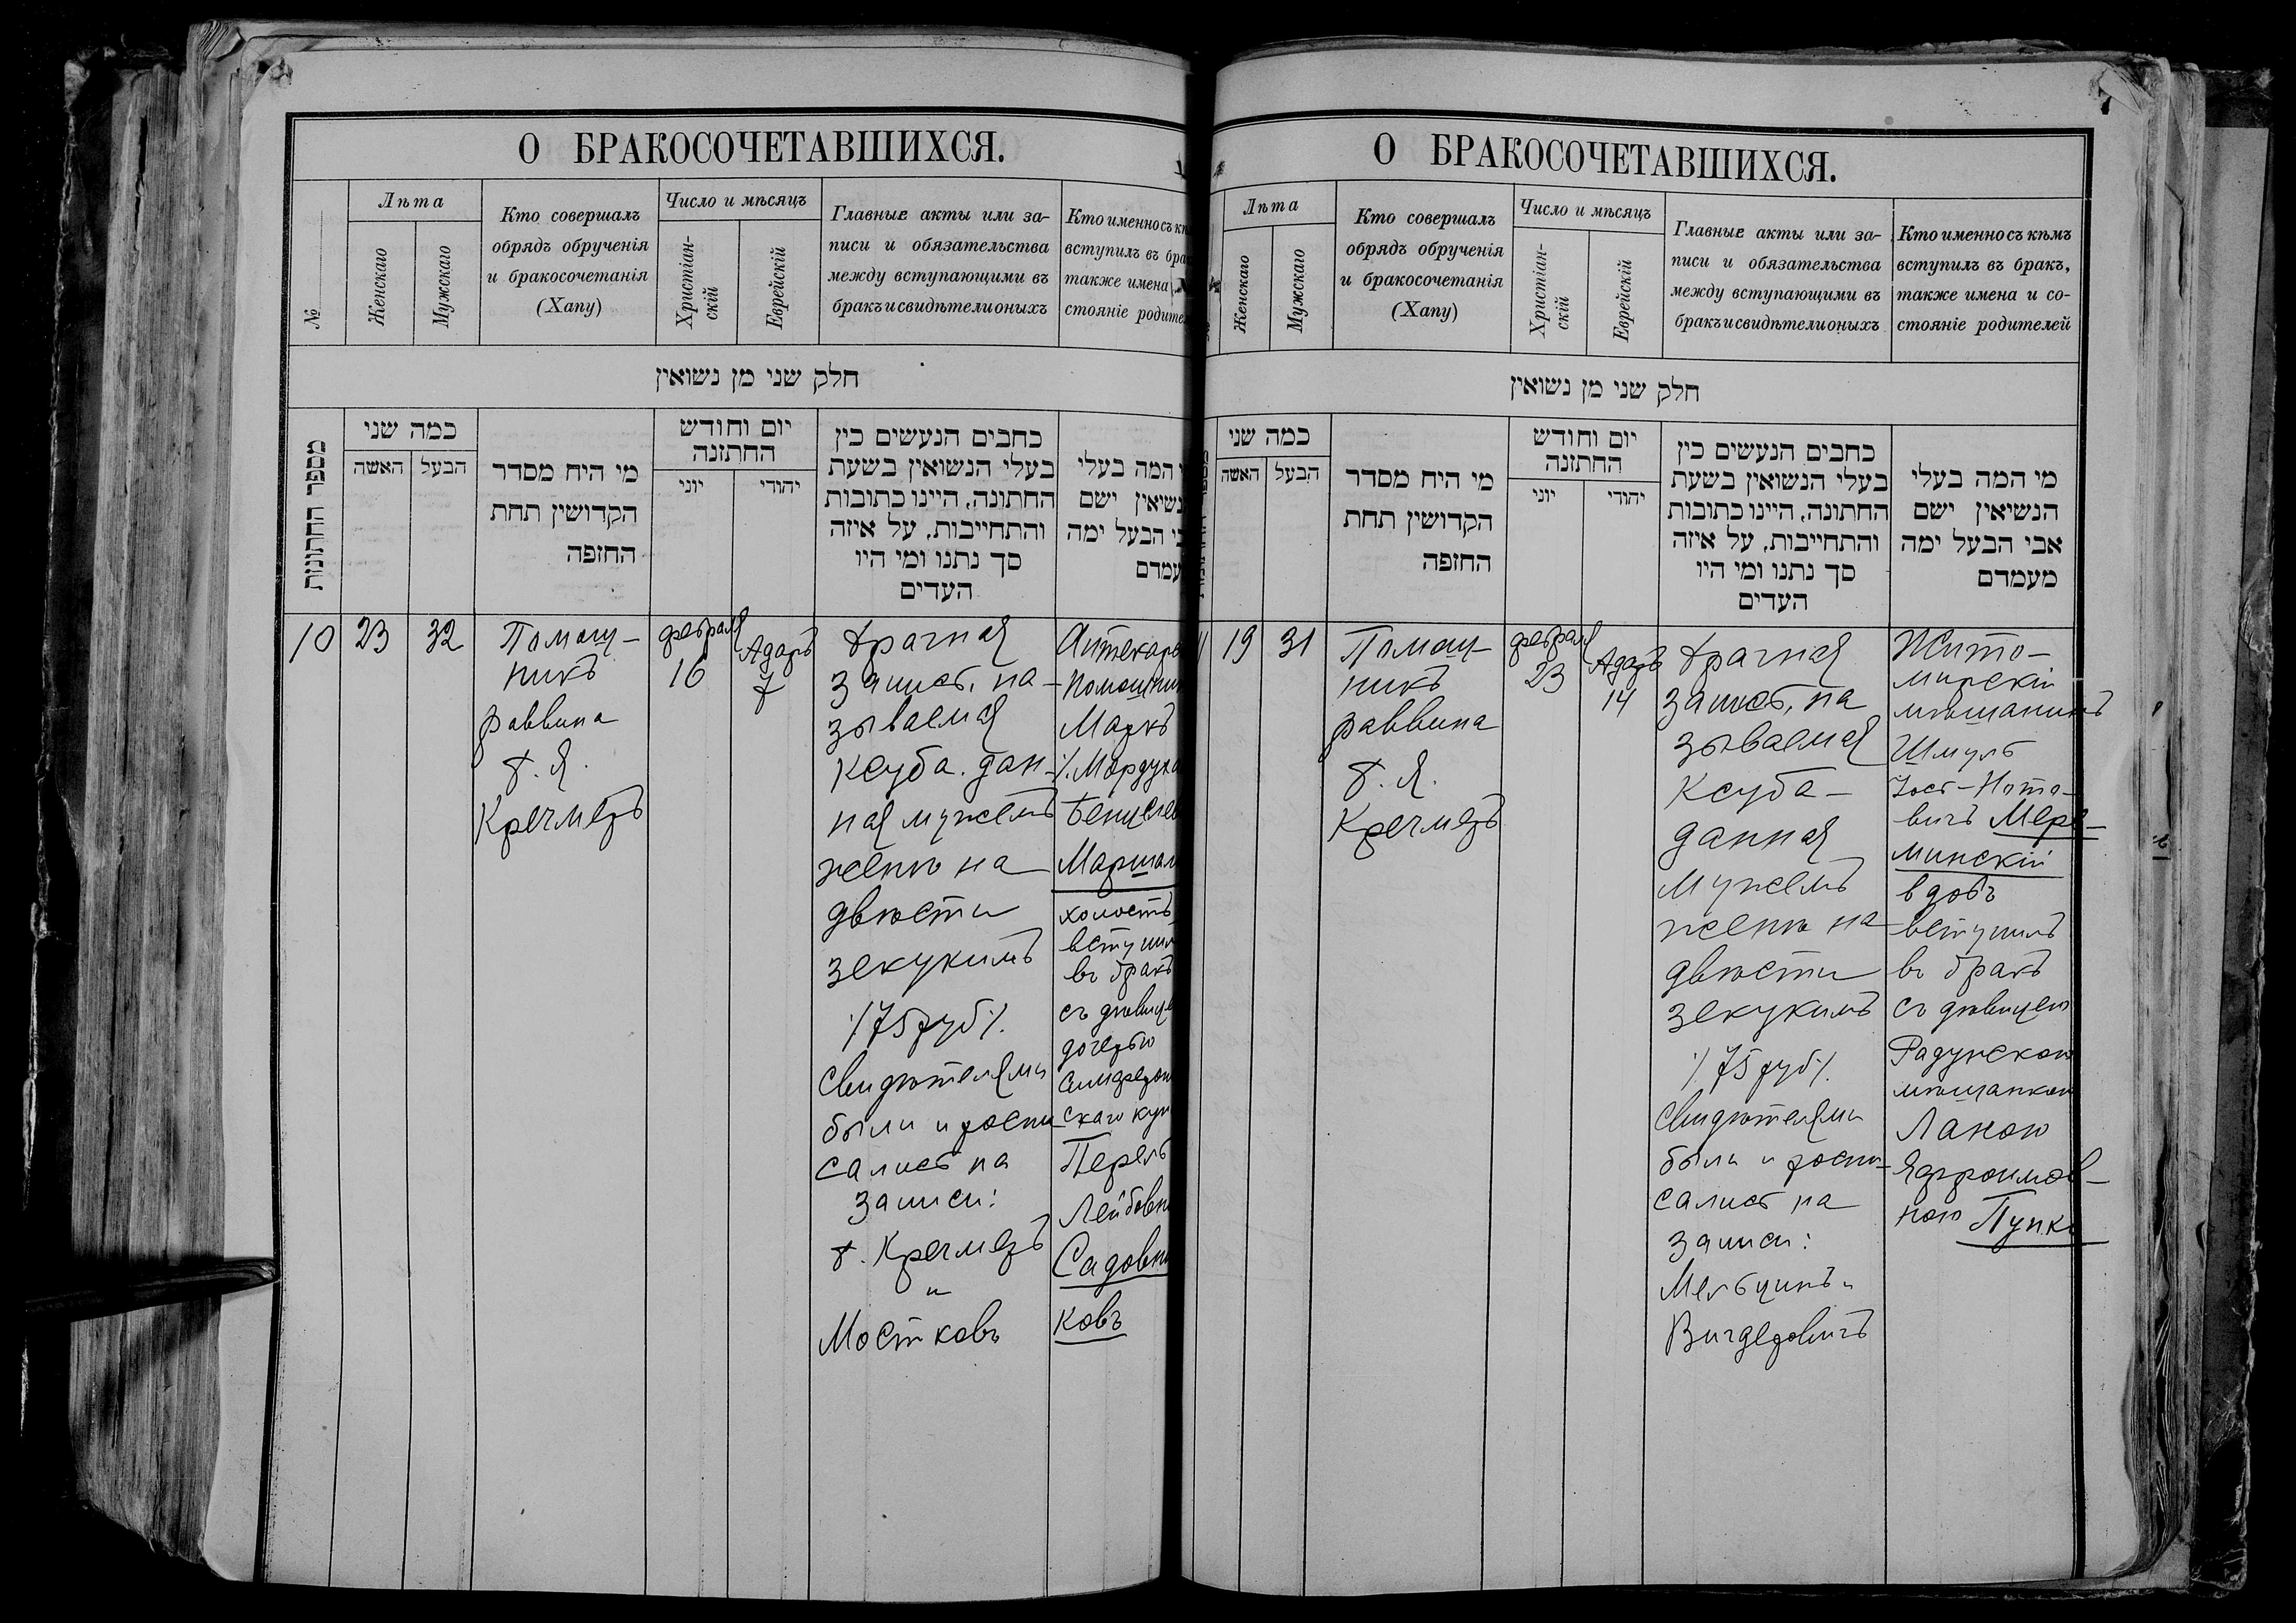 О БРАКОСОЧЕТАВШИХСЯ.
№
Лѣта
Женскаго
Мужскаго
Кто совершалъ
обрядъ обрученія
и бракосочетанія
(Хапу)
Число и мѣсяцъ
Христіан-
скій
Еврейскій
Главные акты или за-
писи и обязательства
между вступающими въ
бракъ и свидѣтели оныхъ
Кто именно съ
вступилъ въ
также имена
стояніе
חלק שני מן נשואין
מספר החתונות
כמה שני
האשה
הבעל
מי היח מסדר
הקדושין תחת
החופה
יום וחודש
החתונה
יוני
יהודי
כחבים הנעשים כין
בעלי הנשואין בשעת
החתונה, היינו כתובות
והתחייבות, על איזה
סך נתנו ומי היו
העדים
המה בעלי
ישם
הבעל ימה
10
23
32
Помощ-
никъ
раввина
Т. Я.
Кречмеръ
февраля
16
Адаръ
7
Брачная
запись, на-
зываемая
ксуба. дан-
ная мужемъ
женѣ на
двѣсти
зекукимъ
/75 руб/.
Свидѣтелями
были и роспи-
сались на
записи:
Т. Кречмеръ
и
Мостковъ
Маркъ
холостъ
въ бракъ
съ
дочерью
скаго
Перель
Садовни
ковъ
О БРАКОСОЧЕТАВШИХСЯ.
Лѣта
Женскаго
Мужскаго
Кто совершалъ
обрядъ обрученія
и бракосочетанія
(Хапу)
Число и мѣсяцъ
Христіан-
скій
Еврейскій
Главные акты или за-
писи и обязательства
между вступающими въ
бракъ и свидѣтели оныхъ
Кто именно съ кѣмъ
вступилъ въ бракъ,
также имена и со-
стояніе родителей
חלק שני מן נשואין
כמה שני
האשה
הבעל
מי היח מסדר
הקדושין תחת
החופה
יום וחודש
החתונה
יוני
יהודי
כחבים הנעשים כין
בעלי הנשואין בשעת
החתונה, היינו כתובות
והתחייבות, על איזה
סך נתנו ומי היו
העדים
מי המה בעלי
הנשיאין ישם
אבי הבעל ימה
מעמדם
11
19
31
Помощ-
никъ
раввина
Т. Я.
Кречмеръ
февраля
23
Адаръ
14
Брачная
запись, на
зываемая
Ксуба-
данная
мужемъ
женѣ на
двѣсти
зекукимъ
/75 руб/.
Свидѣтелями
были и роспи-
сались на
записи:
Мельцинъ и
Жито-
мирскій
мѣщанинъ
Шмуль
вичъ Мере-
минскій
вдовъ
вступилъ
въ бракъ
съ дѣвицею
Радунскою
мѣщанкою
Ланою
Яфроимов-
ною